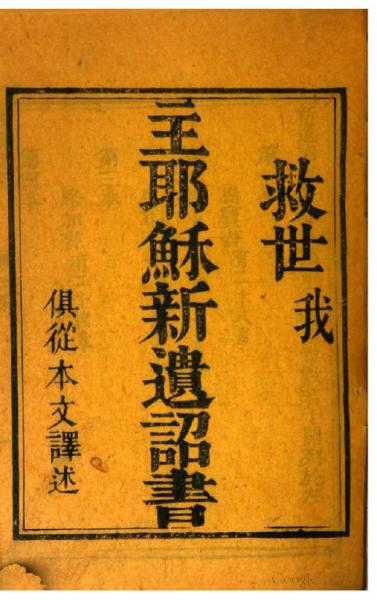 救世我
主耶穌新遺詔書
俱從本文譯述
Google